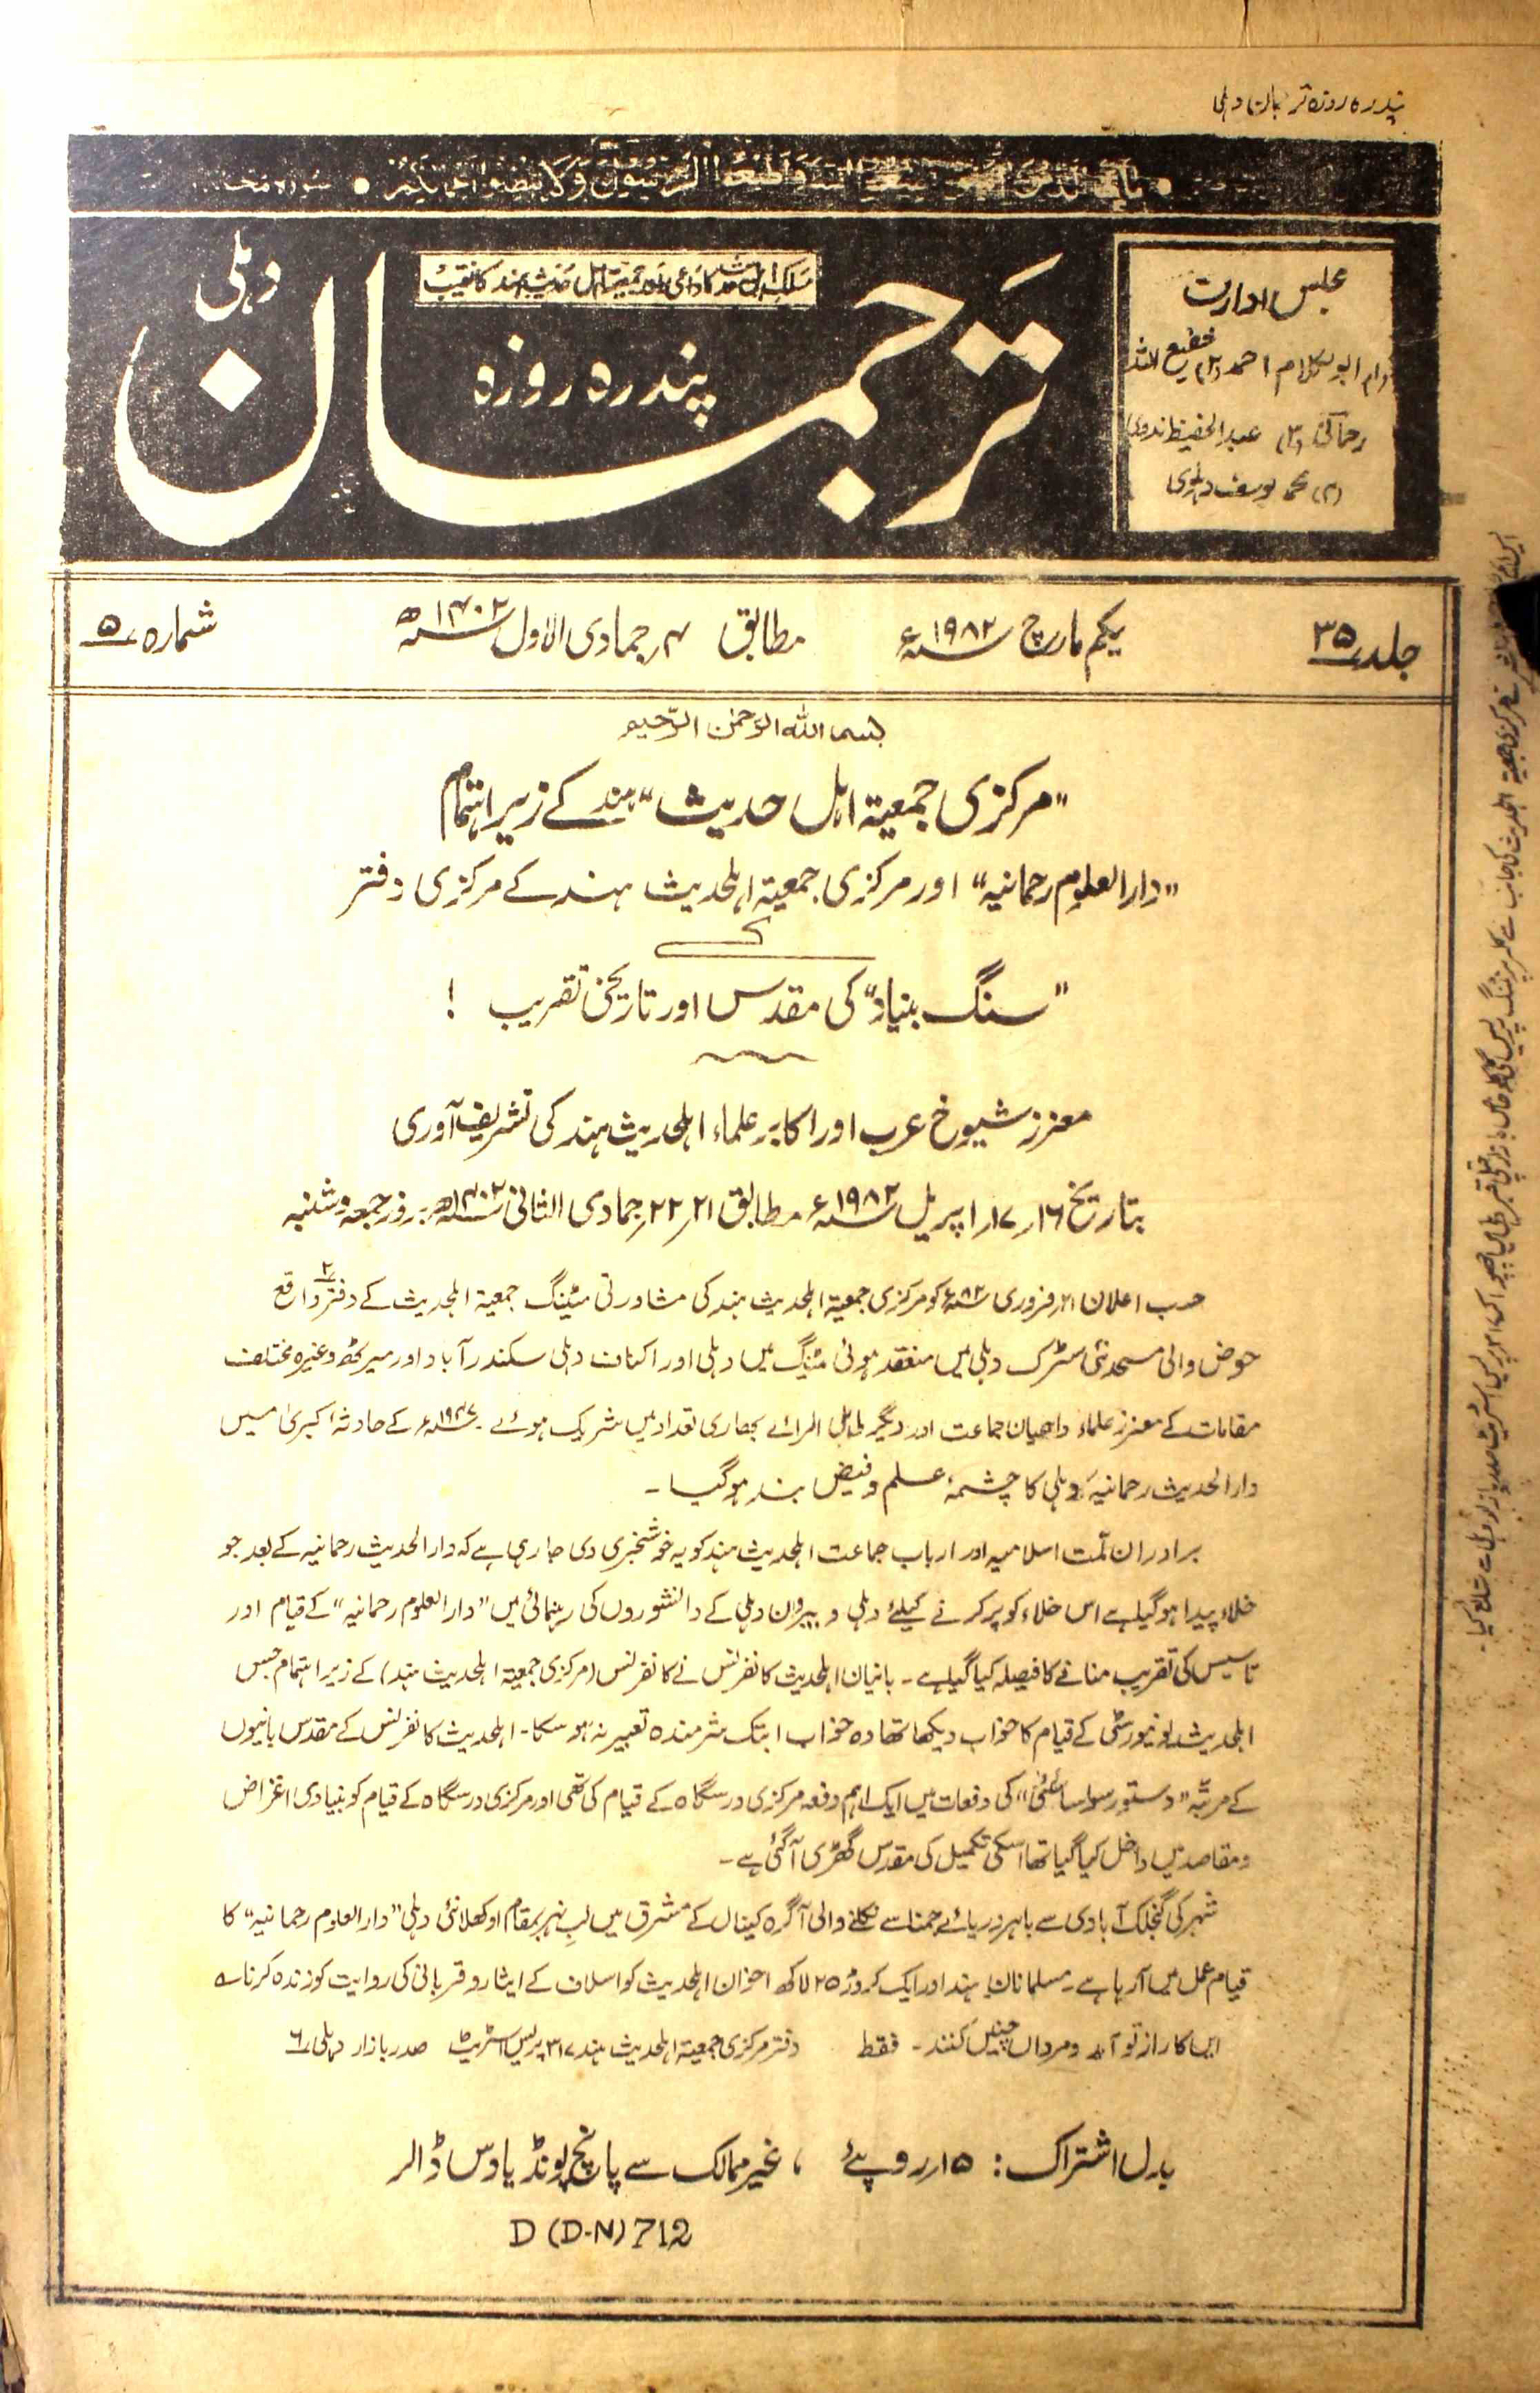 پندرہ روزہ ترجمان دہلی
واطیعوا الرسول ولا تبطلوا اعمالکم • سورہ محمد
دہلی
مسلک اہل حدیث کا داعی اور جمعیت اہل حدیث ہند کا نقیب
ترجمان
پندرہ روزہ
مجلس ادارت
(۱) ابوالکلام احمد (۲) شفیع اللہ
رحمانی (۳) عبدالحفیظ ندوی
(۴) محمد یوسف دہلوی
جلد ۳۵ یکم مارچ ۱۹۸۲ء مطابق ۴ جمادی الاول ۱۴۰۲ھ شمارہ ۵
بسم اللہ الرحمٰن الرحیم
"مرکزی جمعیۃ اہل حدیث" ہند کے زیر اہتمام
"دارالعلوم رحمانیہ" اور مرکزی جمعیۃ اہلحدیث ہند کے مرکزی دفتر
کے
"سنگ بنیاد" کی مقدس اور تاریخی تقریب !
معزز شیوخ عرب اور اکابر علماء اہلحدیث ہند کی تشریف آوری
بتاریخ ۱۶، ۱۷ اپریل ۱۹۸۲ء مطابق ۲۱، ۲۲ جمادی الثانی ۱۴۰۲ھ بروز جمعہ و شنبہ
حسب اعلان ۲۱ فروری ۸۲ء کو مرکزی جمعیۃ اہلحدیث ہند کی مشاورتی میٹنگ جمعیۃ اہلحدیث کے دفتر ۲ واقع
حوض والی مسجد نئی سڑک دہلی میں منعقد ہوئی میٹنگ میں دہلی اور اکناف دہلی سکندرآباد اور میرٹھ وغیرہ مختلف
مقامات کے معزز علماء واعیان جماعت اور دیگر اہل الرائے بھاری تعداد میں شریک ہوئے۔ ۱۹۴۷ء کے حادثہ کبریٰ میں
دارالحدیث رحمانیہ دہلی کا چشمۂ علم و فیض بند ہوگیا ۔
برادران ملت اسلامیہ اور ارباب جماعت اہلحدیث ہند کو یہ خوشخبری دی جارہی ہے کہ دارالحدیث رحمانیہ کے بعد جو
خلاء پیدا ہوگیا ہے اس خلاء کو پر کرنے کیلئے دہلی و بیرون دہلی کے دانشوروں کی رہنمائی میں "دارالعلوم رحمانیہ" کے قیام اور
تاسیس کی تقریب منانے کا فیصلہ کیا گیا ہے ۔ بانیان اہلحدیث کانفرنس نے کانفرنس (مرکزی جمعیۃ اہلحدیث ہند) کے زیر اہتمام جس
اہلحدیث یونیورسٹی کے قیام کا خواب دیکھا تھا وہ خواب ابتک شرمندہ تعبیر نہ ہوسکا ۔ اہلحدیث کانفرنس کے مقدس بانیوں
کے مرتبہ "دستور سوسائٹی" کی دفعات میں ایک اہم دفعہ مرکزی درسگاہ کے قیام کی تھی اور مرکزی درسگاہ کے قیام کو بنیادی اغراض
ومقاصد میں داخل کیا گیا تھا اسکی تکمیل کی مقدس گھڑی آگئی ہے ۔
شہر کی گنجلک آبادی سے باہر دریائے جمنا سے نکلنے والی آگرہ کینال کے مشرق میں لب نہر بمقام اوکھلا نئی دہلی "دارالعلوم رحمانیہ" کا
قیام عمل میں آرہا ہے ۔ مسلمانان ہند اور ایک کروڑ ۲۵ لاکھ اخوان اہلحدیث کو اسلاف کے ایثار و قربانی کی روایت کو زندہ کرنا ہے
ایں کار از تو آید و مرداں چنیں کنند ۔ فقط دفتر مرکزی جمعیۃ اہلحدیث ہند ۳۱۷ پریس اسٹریٹ صدر بازار دہلی ۶
بدل اشتراک : ۱۵ روپئے ، غیر ممالک سے پانچ پونڈ یا دس ڈالر
D (D-N) 712